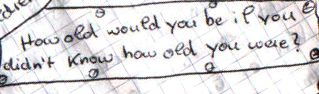 How old would you be if you
didn't know how old you were?